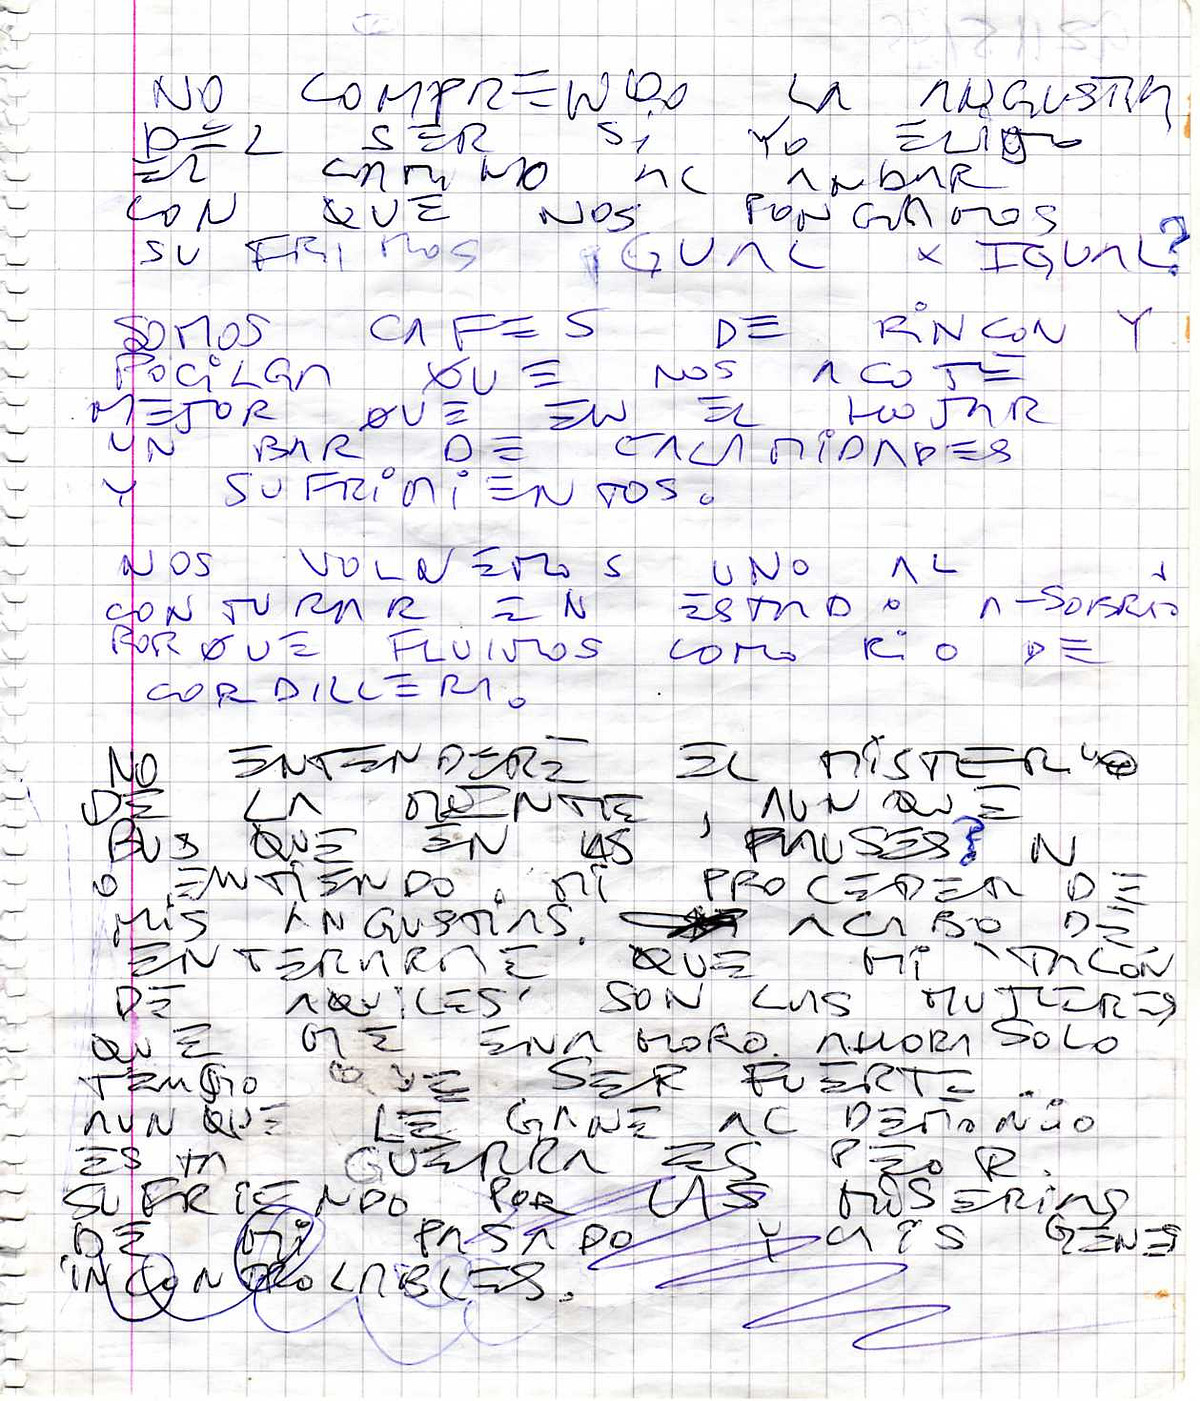 NO COMPRENDO LA ANGUSTIA
DEL SER SI YO ELIJO
EL CAMINO AL ANDAR
CON QUE NOS PONGAMOS
SUFRIMOS IGUAL X IGUAL?
SOMOS CAFES DE RINCON Y
POCILGA QUE NOS ACOJE
MEJOR QUE EN EL HOJAR
UN BAR DE CALAMIDADES
Y SUFRIMIENTOS.
NOS VOLVEMOS UNO AL
CONJURAR EN ESTADO A-SOBRIO
PORQUE FLUIMOS COMO RIO DE
CORDILLERA.
NO ENTENDERÉ EL MISTERIO
DE LA MENTE, AUNQUE
BUSQUE EN LAS PAUSES? N
O ENTIENDO. MI PROCEDER DE
MIS ANGUSTIAS. ACABO DE
ENTERARME QUE MI 'TALÓN
DE AQUILES' SON LAS MUJERES
QUE ME ENAMORO. AHORA SOLO
TENGO QUE SER FUERTE.
AUNQUE LE GANE AL DEMONIO
ESTA GUERRA ES PEOR.
SUFRIENDO POR LAS MISERIAS
DE MI PASADO Y MIS GENES
INCONTROLABLES.